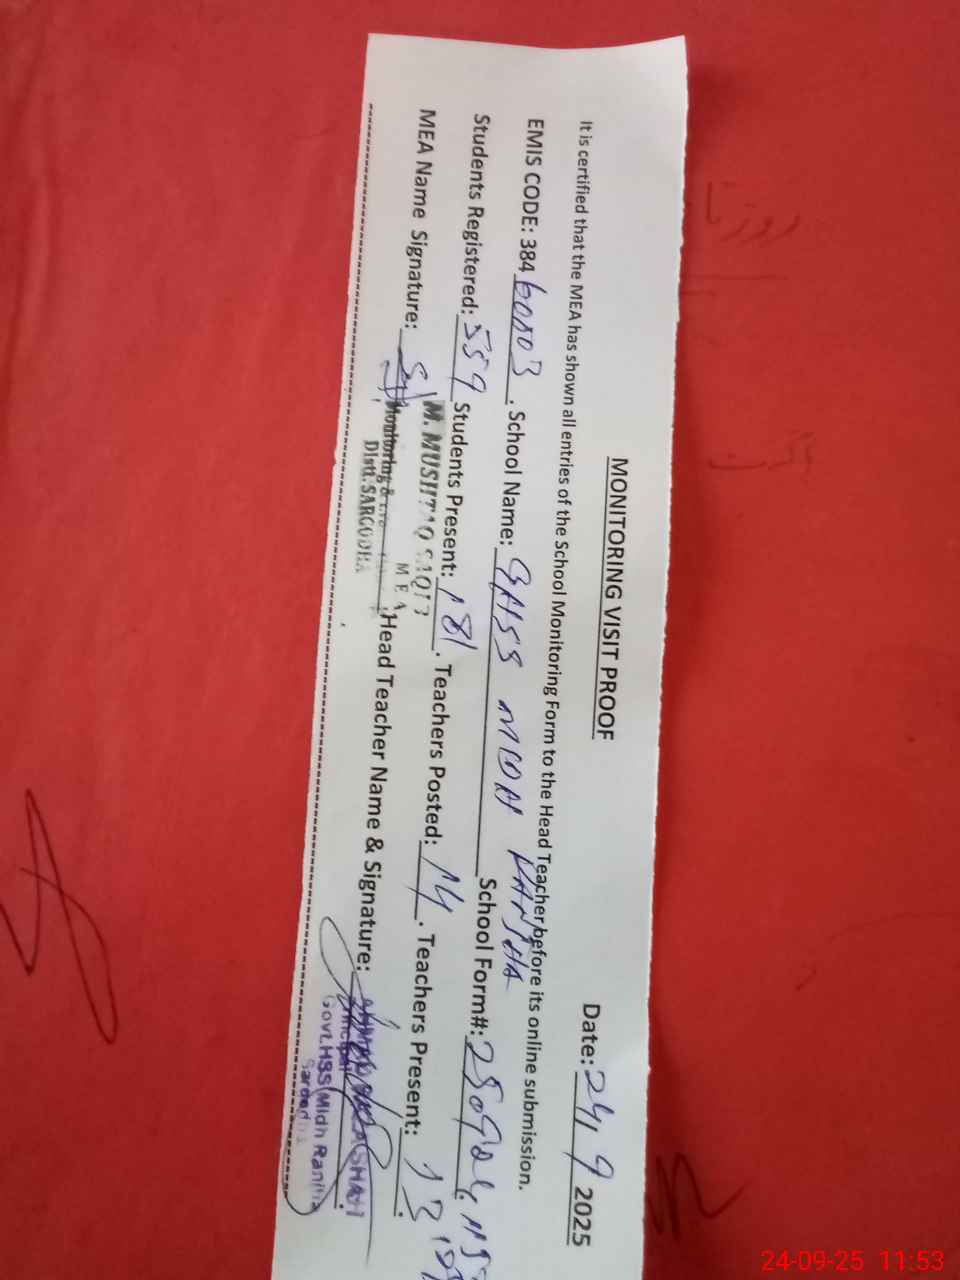 MONITORING VISIT PROOF
Date: 24/9 2025
It is certified that the MEA has shown all entries of the School Monitoring Form to the Head Teacher before its online submission.
EMIS CODE: 384 60003. School Name: GHSS MIDH RANJHA School Form#:
Students Registered: 559 Students Present: 181. Teachers Posted: 14. Teachers Present: 13.
MEA Name Signature: Head Teacher Name & Signature:
M. MUSHTAQ SAQIB
MEA
Monitoring &
Distt. SARGODHA
Principal
Govt. HSS Midh Ranjha
Sargodha
24-09-25 11:53